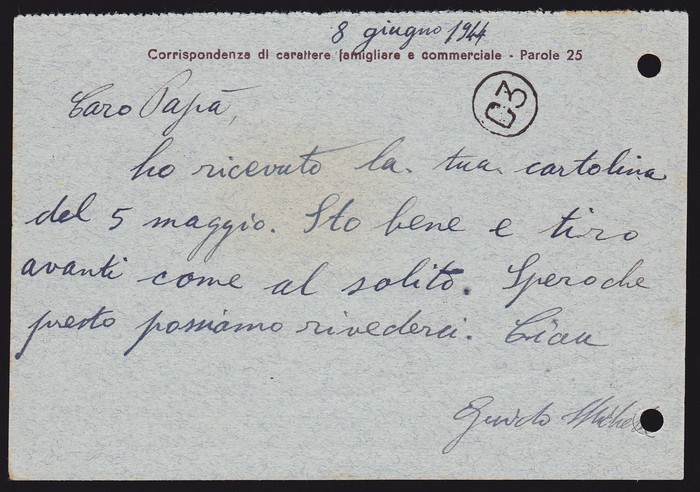 8 giugno 1944
Corrispondenza di carattere famigliare e commerciale - Parole 25
C3
Caro Papà,
ho ricevuto la tua cartolina
del 5 maggio. Sto bene e tiro
avanti come al solito. Spero che
presto possiamo rivederci. Ciau
Guido